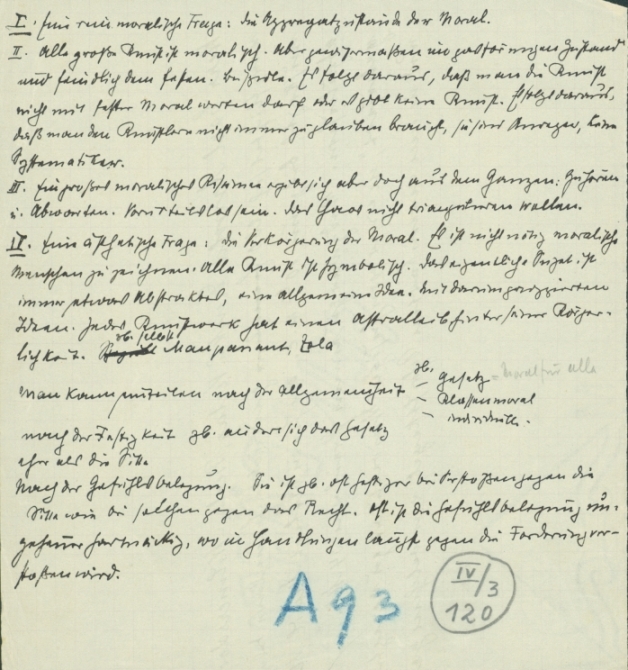 I. Eine rein moralische Frage: die Aggregatzustände der Moral.
II. Alle große Kunst ist moralisch. Aber gewissermaßen im gasförmigen Zustand
und feindlich dem festen. Beispiele. Es folgt daraus, daß man die Kunst
nicht mit fester Moral werten darf oder es gibt keine Kunst. Es folgt daraus,
daß man den Künstlern nicht immer zu glauben braucht, sie sind Anreger, keine
Systematiker.
III. Ein großes moralisches Resümee ergibt sich aber doch aus dem Ganzen: Zuhören
u. Abwarten. Vorurteilslos sein. Das Chaos nicht triangulieren wollen.
IV. Eine ästhetische Frage: die Verkörperung der Moral. Es ist nicht nötig moralische
Menschen zu zeichnen. Alle Kunst ist symbolisch. Das eigentliche Sujet ist
immer etwas Abstraktes, eine allgemeine Idee. Mit darum gruppierten
Ideen. Jedes Kunstwerk hat einen Astralleib hinter seiner Körper-
lichkeit. zb. selbst Maupassant, Zola
Man kann einteilen nach der Allgemeinheit zb. – Gesetz = Moral für alle
– Klassenmoral
– individuelle.
nach der Festigkeit zb. ändert sich das Gesetz
eher als die Sitte
Nach der Gefühlsbelegung. Sie ist zb. oft heftiger bei Verstößen gegen die
Sitte wie bei solchen gegen das Recht. Oft ist die Gefühlsbelegung un-
geheuer hartnäckig, wo in Handlungen längst gegen die Forderung ver-
stoßen wird.
A93
IV/3
120